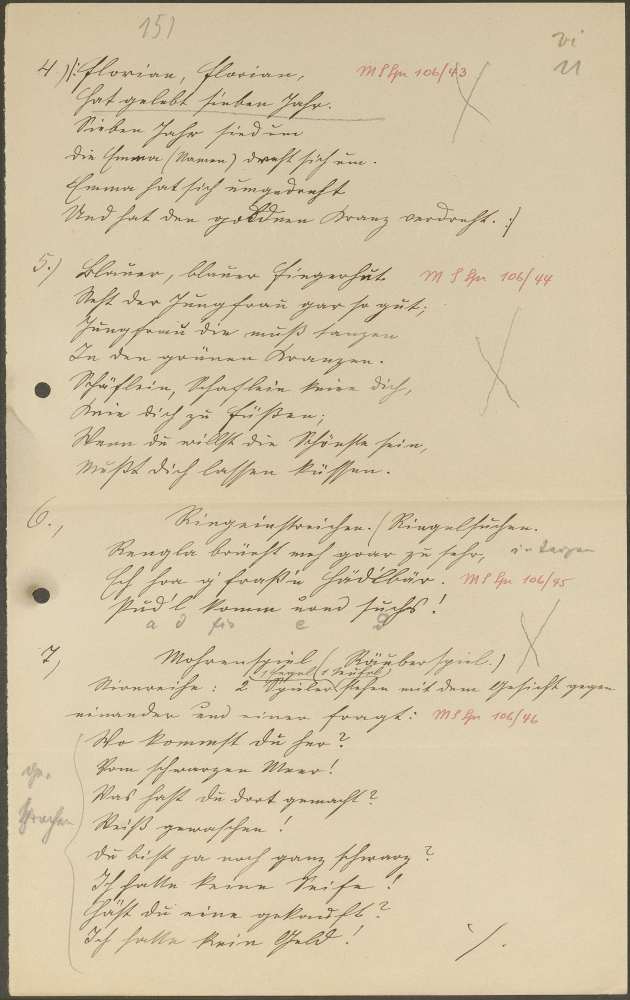 151
VI
11
4.) |: Florian, Florian, MS Spr 106/43
hat gelebt sieben Jahr.
Sieben Jahr sind um
die Emma (Namen) dreht sich um.
Emma hat sich umgedreht
Und hat den goldnen Kranz verdreht. :|
5.) Blauer, blauer Fingerhut MS Spr 106/44
Steht der Jungfrau gar so gut;
Jungfrau die muß tanzen
In den grünen Kranzen.
Schäflein, Schäflein knie dich,
Knie dich zu Füßen;
Wenn du willst die Schönste sein,
Mußt dich lassen küssen.
6., Ringeinstreichen. (Ringelsuchen.
Rengla brücht meh goar zu sehr, in Terzen
MS Spr 106/45
Pud'l komm rond suchs!
a d fis e d
7) Mohrenspiel (Räuberspiel.)
1 Engel (1 Teufel)
: 2 Spieler stehen mit dem Gesicht gegen
einander und einer fragt: MS Spr 106/46
Wo kommst du her?
Vom schwarzen Meer!
Was hast du dort gemacht?
Weiß gewaschen!
Du bist ja noch ganz schwarz?
Ich hatte keine Seife!
Hast du eine gekauft?
Ich hatte kein Geld!
ge-
sprochen
./.